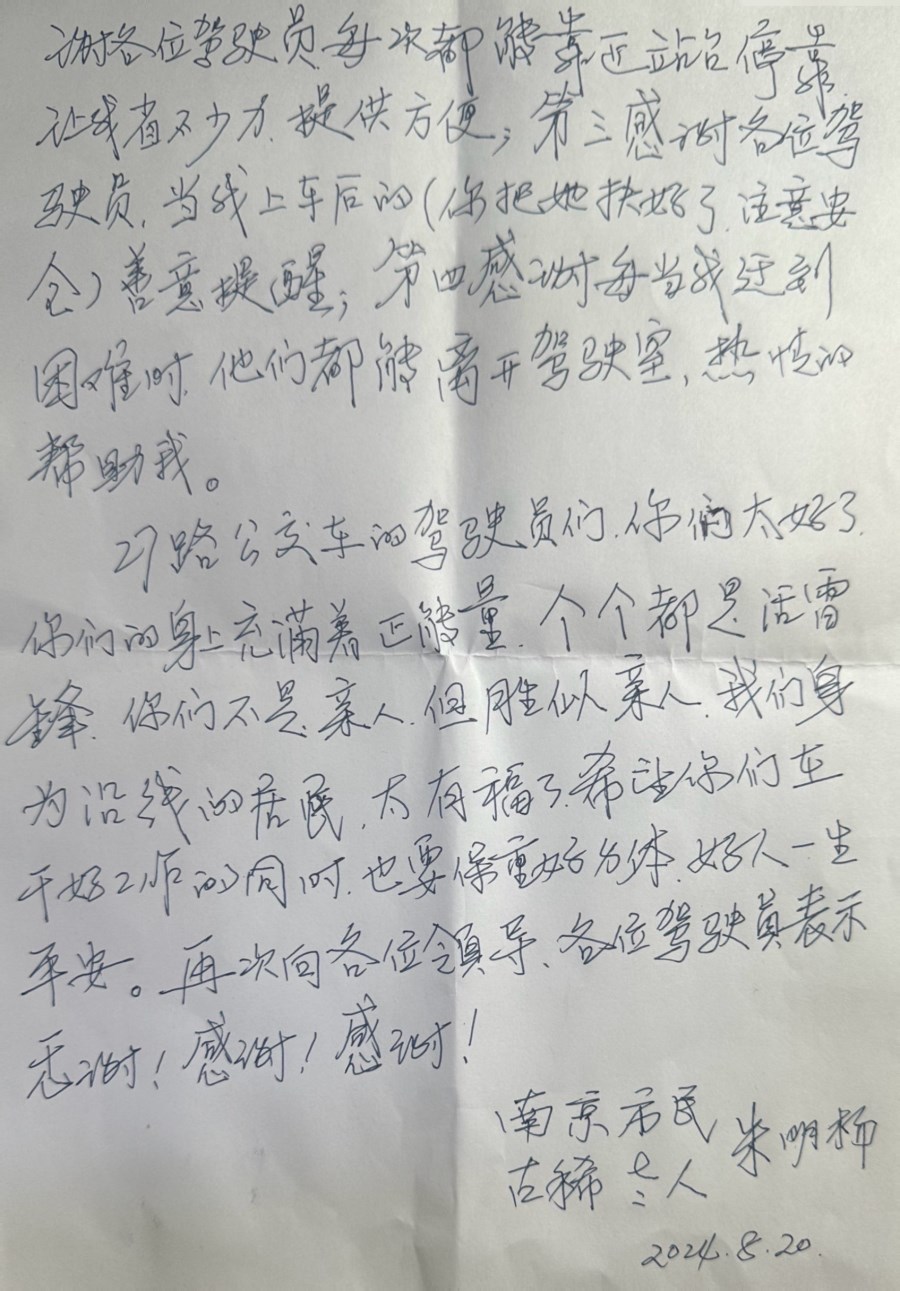 谢各位驾驶员每次都能靠近站台停靠
让我省不少力,提供方便;第三感谢各位驾
驶员,当我上车后的(你把她扶好了,注意安
全)善意提醒;第四感谢每当我迂到
困难时,他们都能离开驾驶室,热情的
帮助我。
27路公交车的驾驶员们,你们太好了.
你们的身上充满着正能量,个个都是活雷
锋,你们不是亲人,但胜似亲人,我们身
为沿线的居民,太有福了,希望你们在
干好工作的同时,也要保重好身体,好人一生
平安。再次向各位领导、各位驾驶员表示
感谢!感谢!感谢!
南京市民 朱明杨
古稀 人
2024.8.20.